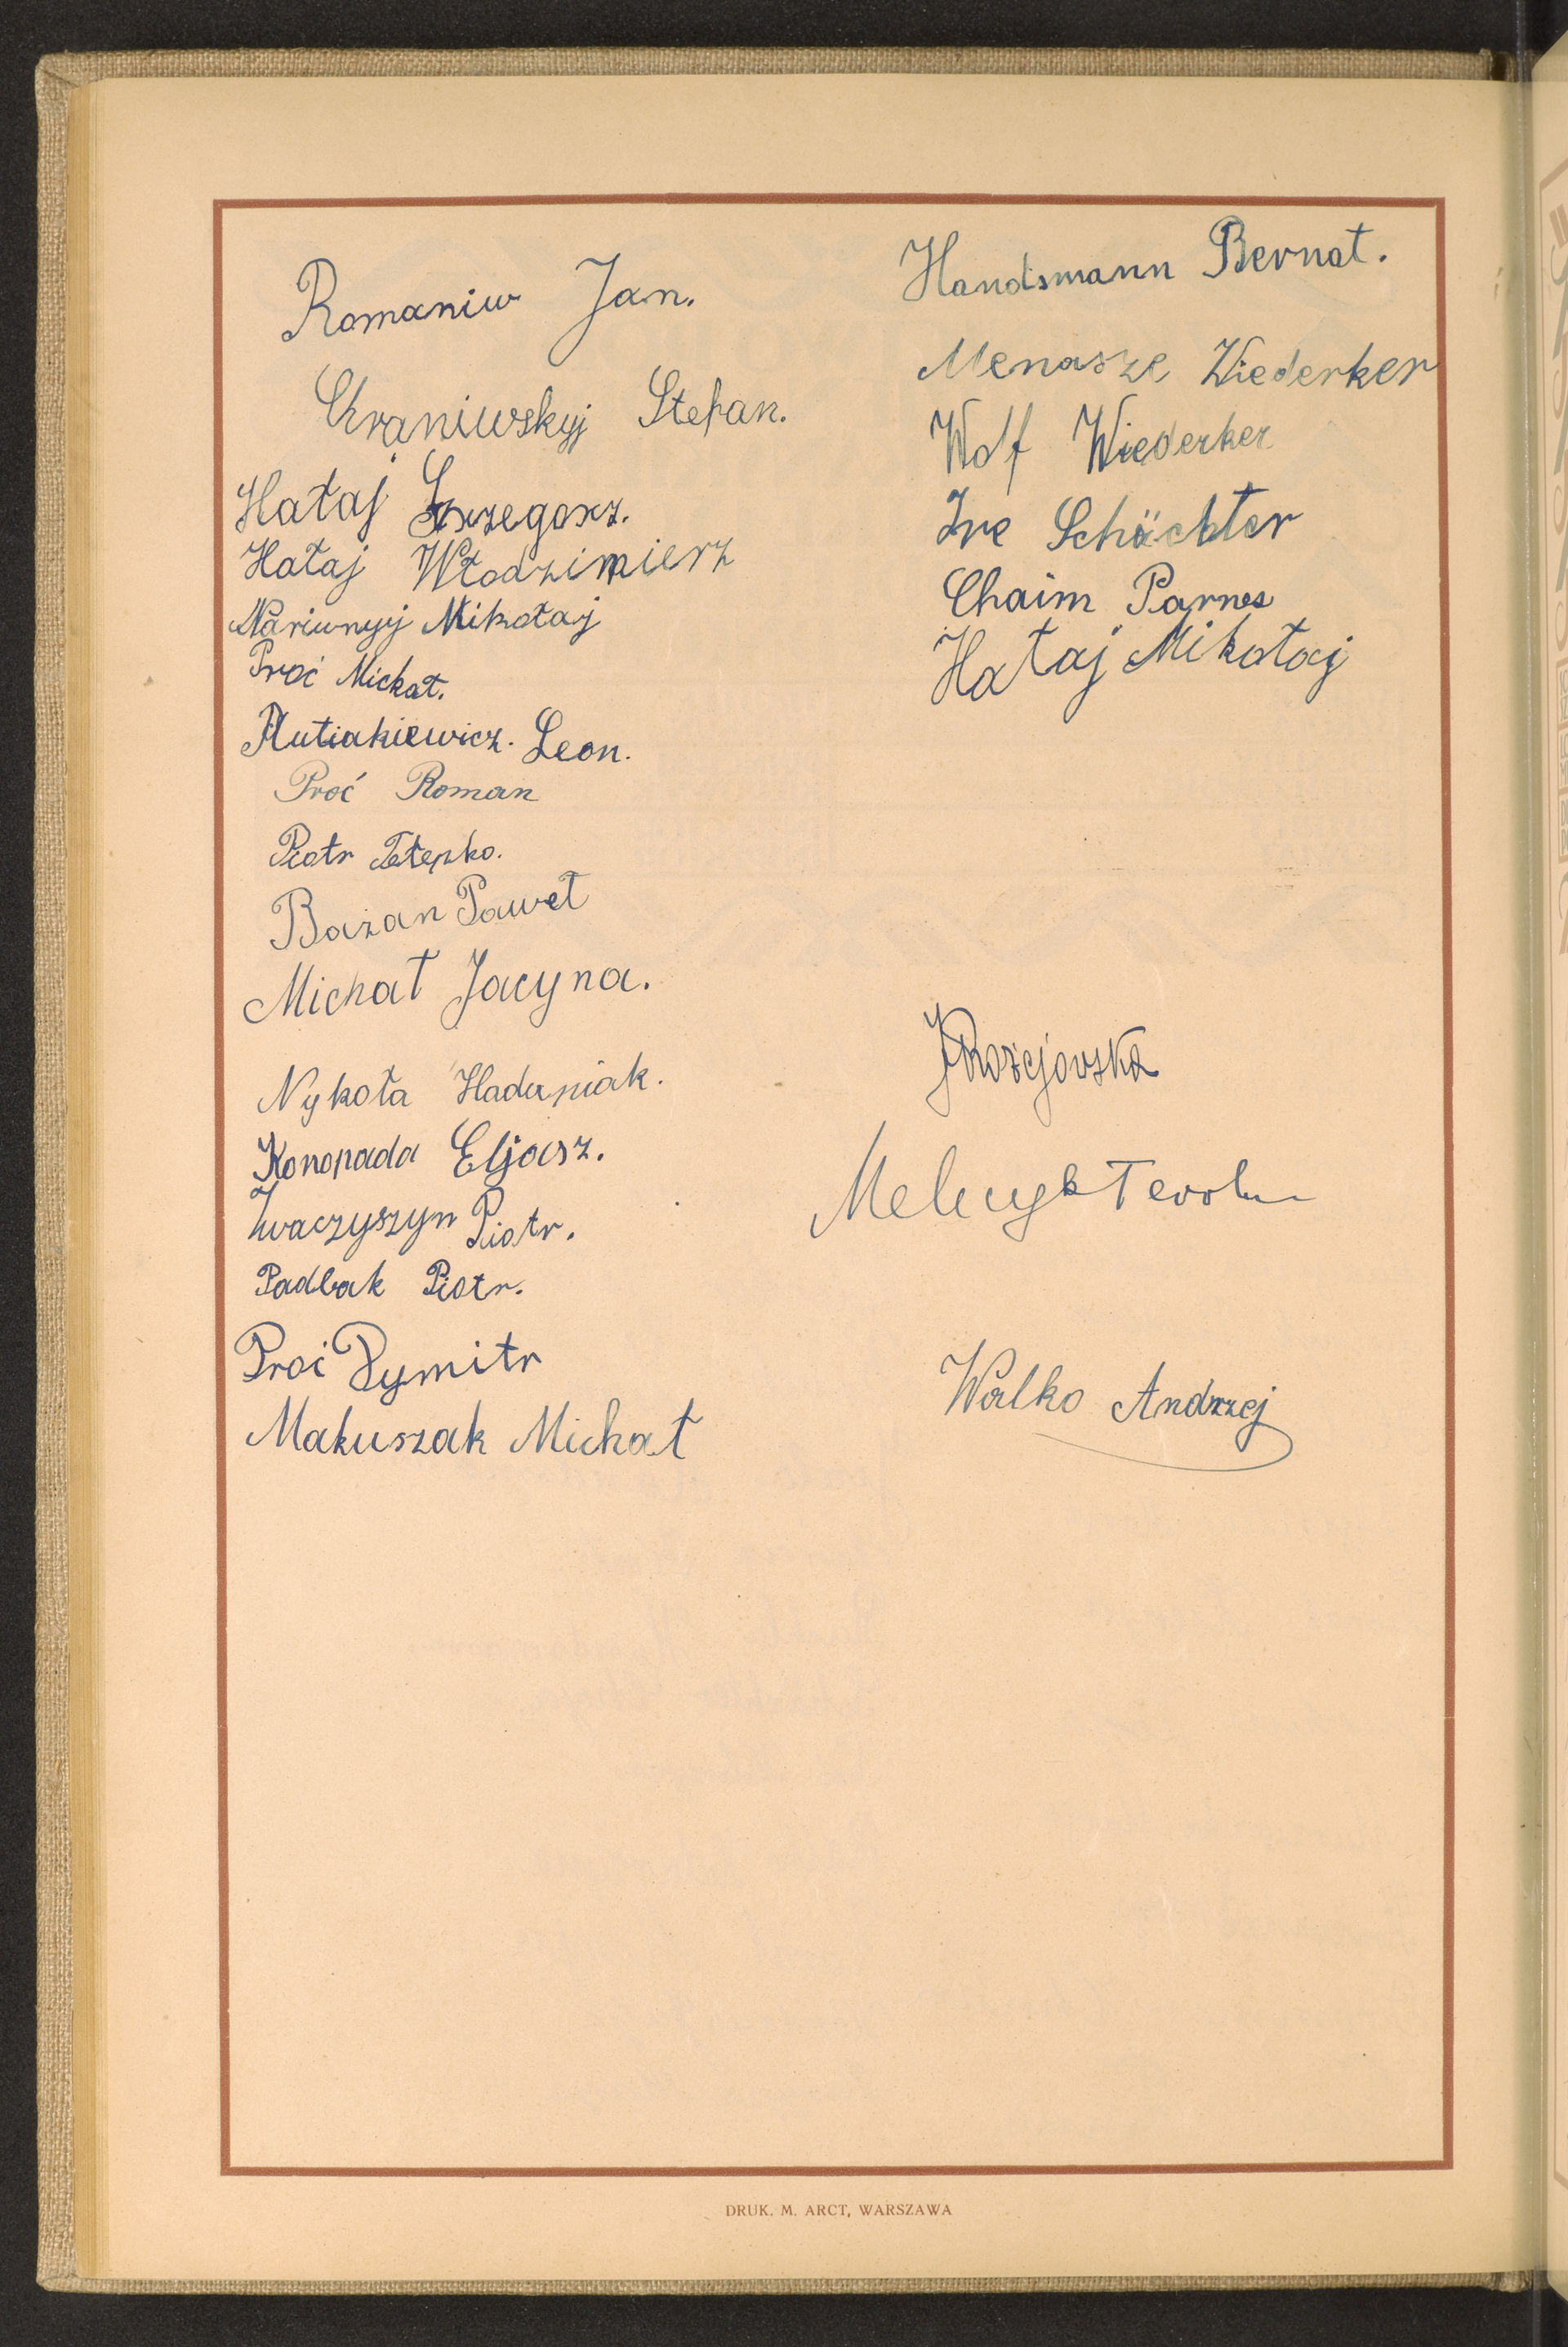 Romaniw Jan.
Chraniwskyj Stefan.
Hałaj Grzegorz.
Hałaj Włodzimierz
Nariwnyj Mikołaj
Proć Michał.
Hutiakiewicz. Leon.
Proć Roman
Piotr Tełepko.
Bazan Paweł
Michał Jacyna.
Nykoła Hadaniak.
Konopada Eljasz.
Iwaczyszyn Piotr.
Padlak Piotr.
Proć Dymitr
Makuszak Michał
Handsmann Bernat.
Menasze Wiederker
Wolf Wiederker
Ire Schächter
Chaim Parnes
Hałaj Mikołaj
Melnyk
Walko Andrzej
DRUK. M. ARCT, WARSZAWA